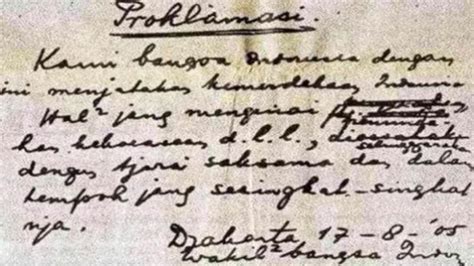 Proklamasi.
Kami bangsa Indonesia dengan
ini menjatakan kemerdekaan Indonesia
Hal² jang mengenai
kekoeasaan d.l.l., diselenggarakan
dengan tjara saksama dan dalam
tempoh jang sesingkat-singkat
nja.
Djakarta 17-8-'05
Wakil² bangsa Indon